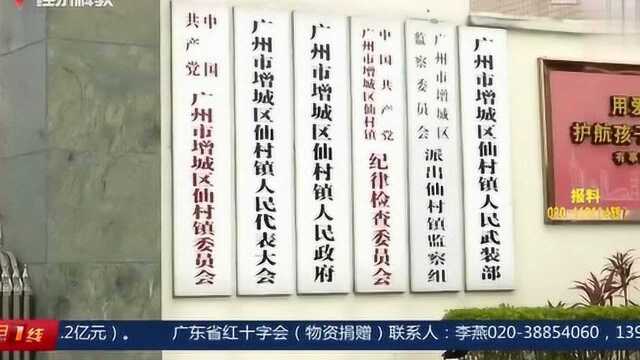 经济科教
中国
共产党
广州市增城区仙村镇委员会
广州市增城区仙村镇人民代表大会
广州市增城区仙村镇人民政府
中国共产党
广州市增城区仙村镇
纪律检查委员会
广州市增城区
监察委员会
派出仙村镇监察组
广州市增城区仙村镇人民武装部
用爱
护航孩子
报料
1线
.2亿元）。
广东省红十字会（物资捐赠）联系人：李燕020-38854060，139